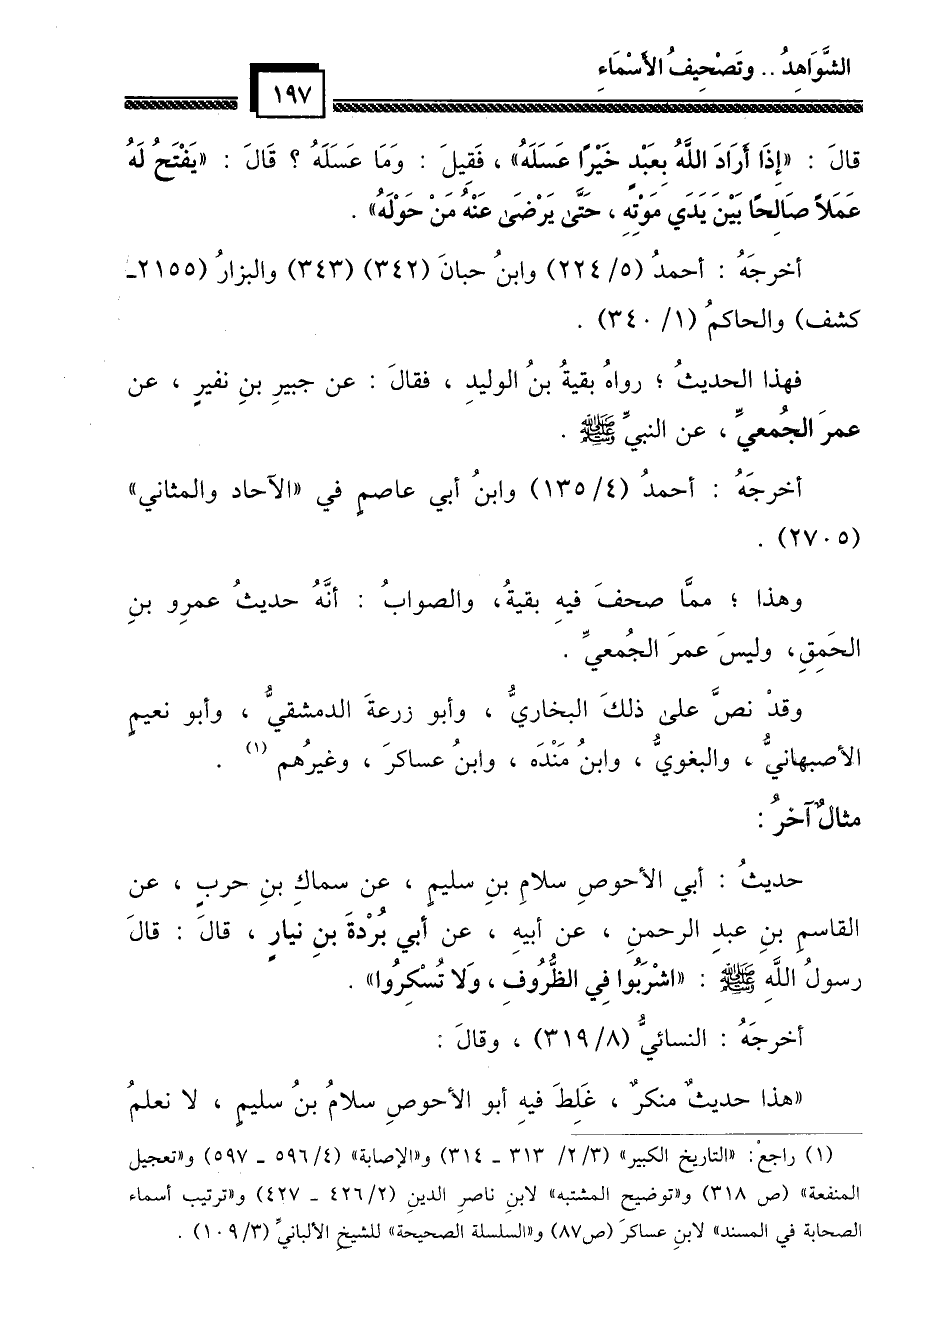 الشَّوَاهِدُ .. وتَصْحِيفُ الأَسْمَاءِ
١٩٧
قالَ : «إِذَا أَرَادَ اللَّهُ بِعَبْدٍ خَيْرًا عَسَلَهُ» ، فَقِيلَ : وَمَا عَسَلَهُ ؟ قَالَ : «يَفْتَحُ لَهُ
عَمَلاً صَالِحًا بَيْنَ يَدَي مَوْتِهِ ، حَتَّى يَرْضَى عَنْهُ مَنْ حَوْلَهُ» .
أخرجَهُ : أحمدُ (٥/ ٢٢٤) وابنُ حبانَ (٣٤٢) (٣٤٣) والبزارُ (٢١٥٥ـ
كشف) والحاكمُ (١/ ٣٤٠) .
فهذا الحديثُ ؛ رواهُ بقيةُ بنُ الوليدِ ، فقالَ : عن جبيرِ بنِ نفيرٍ ، عن
عمرَ الجُمعيِّ ، عن النبيِّ ﷺ .
أخرجَهُ : أحمدُ (٤/ ١٣٥) وابنُ أبي عاصمٍ في «الآحاد والمثاني»
(٢٧٠٥) .
وهذا ؛ ممَّا صحفَ فيهِ بقيةُ، والصوابُ : أنَّهُ حديثُ عمرِو بنِ
الحَمِقِ، وليسَ عمرَ الجُمعيِّ .
وقدْ نصَّ على ذلكَ البخاريُّ ، وأبو زرعةَ الدمشقيُّ ، وأبو نعيمٍ
الأصبهانيُّ ، والبغويُّ ، وابنُ مَنْدَه ، وابنُ عساكرَ ، وغيرُهم (١) .
مثالٌ آخرُ :
حديثُ : أبي الأحوصِ سلامِ بنِ سليمٍ ، عن سماكِ بنِ حربٍ ، عن
القاسمِ بنِ عبدِ الرحمنِ ، عن أبيهِ ، عن أبي بُرْدةَ بنِ نيارٍ ، قالَ : قالَ
رسولُ اللَّهِ ﷺ : «اشْرَبُوا فِي الظُّرُوفِ ، وَلَا تُسْكِرُوا» .
أخرجَهُ : النسائيُّ (٨/ ٣١٩) ، وقالَ :
«هذا حديثٌ منكرٌ ، غَلِطَ فيهِ أبو الأحوصِ سلامُ بنُ سليمٍ ، لا نعلمُ
(١) راجعْ: «التاريخ الكبير» (٣/ ٢/ ٣١٣ ـ ٣١٤) و«الإصابة» (٤/ ٥٩٦ ـ ٥٩٧) و«تعجيل
المنفعة» (ص ٣١٨) و«توضيح المشتبه» لابنِ ناصرِ الدينِ (٢/ ٤٢٦ ـ ٤٢٧) و«ترتيب أسماء
الصحابة في المسند» لابنِ عساكرَ (ص٨٧) و«السلسلة الصحيحة» للشيخِ الألبانيِّ (٣/ ١٠٩) .